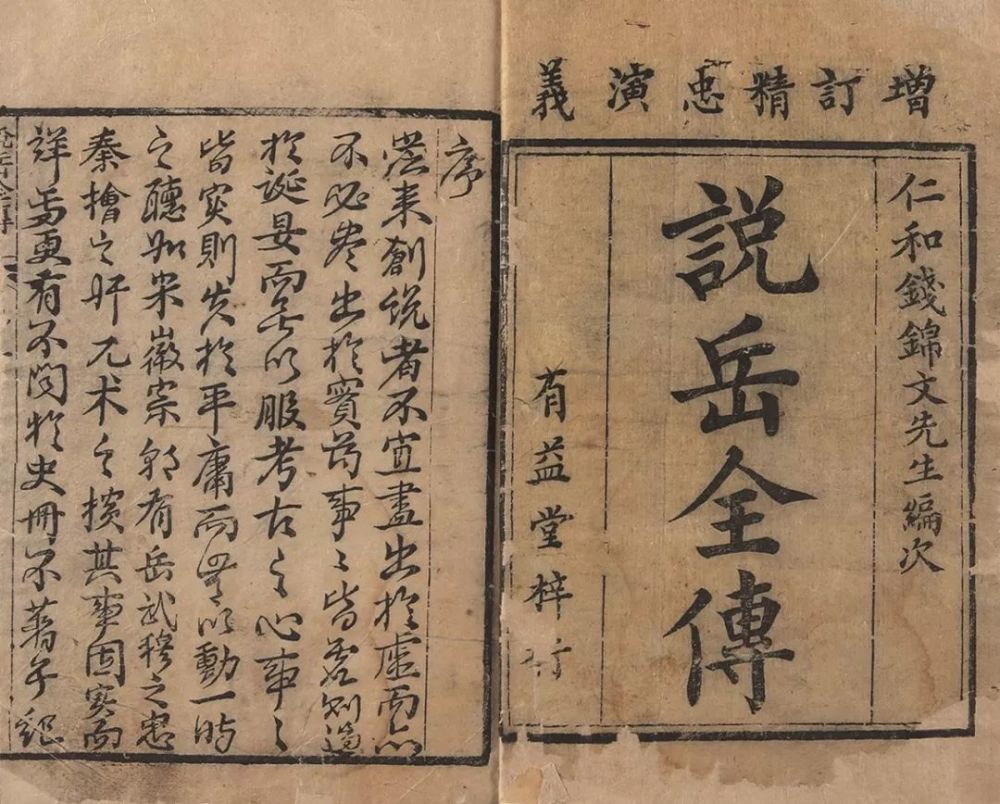 增訂精忠演義
仁和錢錦文先生編次
説岳全傳
有益堂梓行
序
從来創説者不宜盡出於虛而亦
不必尽出於實苟事々皆虛則過
於誕妄而無以服考古之心事々
皆实則失於平庸而無以動一時
之聽如宋徽宗朝有岳武穆之忠
秦檜之奸兀术之橫其事固实而
詳焉更有不聞於史冊不著於紀